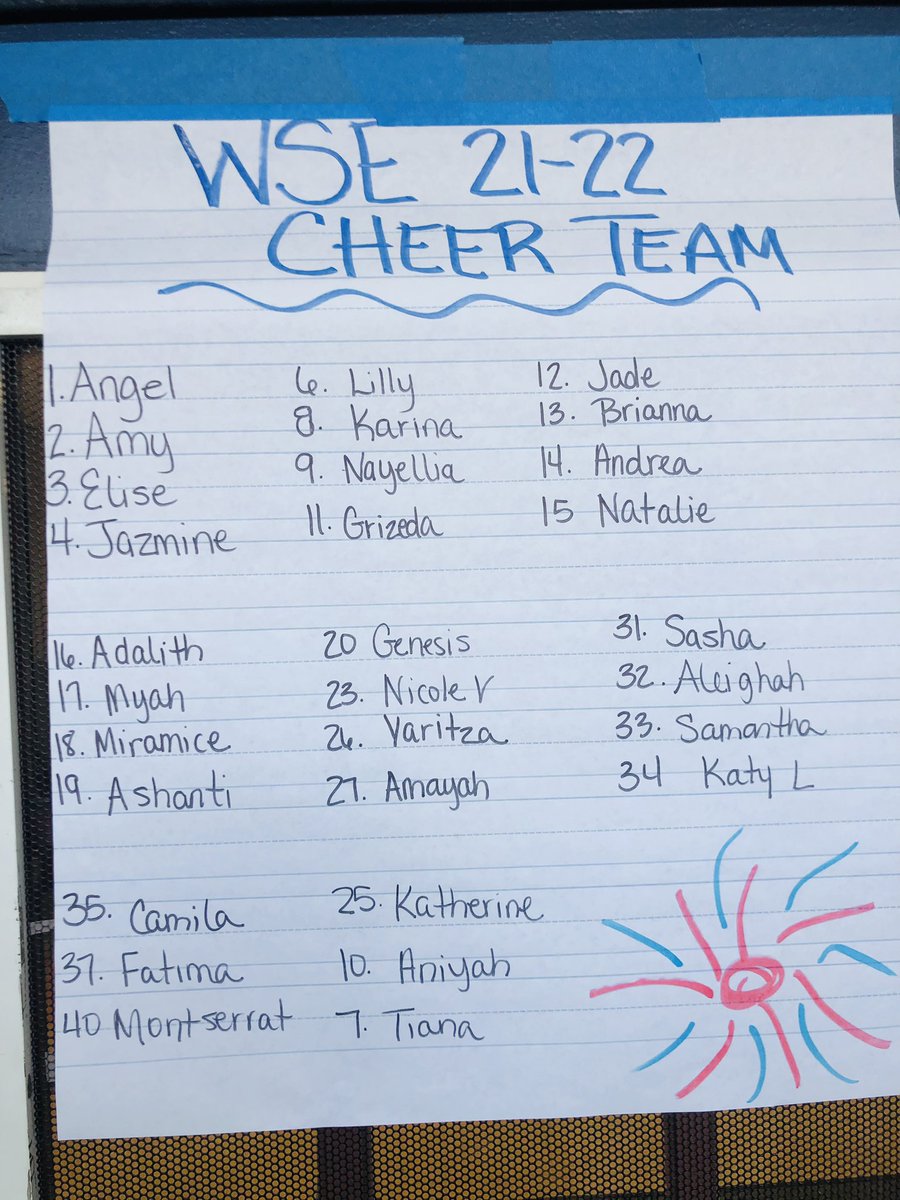 WSE 21-22
CHEER TEAM
1. Angel
2. Amy
3. Elise
4. Jazmine
6. Lilly
8. Karina
9. Nayellia
11. Grizeda
12. Jade
13. Brianna
14. Andrea
15 Natalie
16. Adalith
17. Myah
18. Miramice
19. Ashanti
20 Genesis
23. Nicole V
26. Yaritza
27. Amayah
31. Sasha
32. Aleighah
33. Samantha
34 Katy L
35. Camila
37. Fatima
40 Montserrat
25. Katherine
10. Aniyah
7. Tiana